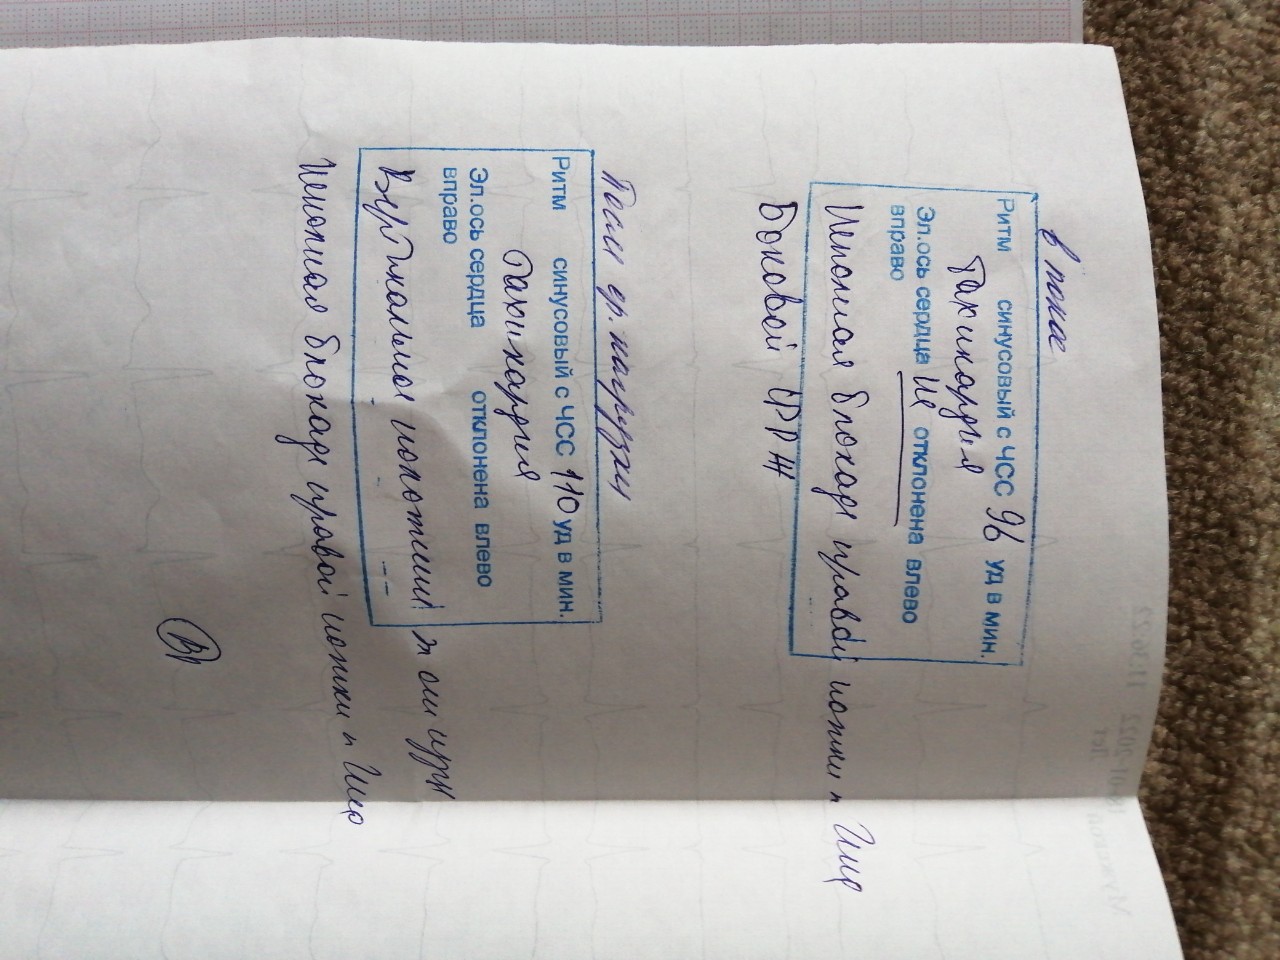 в покое
Ритм синусовый с ЧСС 96 уд в мин.
тахикардия
Эл.ось сердца не отклонена влево
вправо
Неполная блокада правой ножки п. Гиса
Боковой
После ф. нагрузки
Ритм синусовый с ЧСС 110 уд в мин.
тахикардия
Эл.ось сердца отклонена влево
вправо
Вертикальное положение
Неполная блокада правой ножки п. Гиса